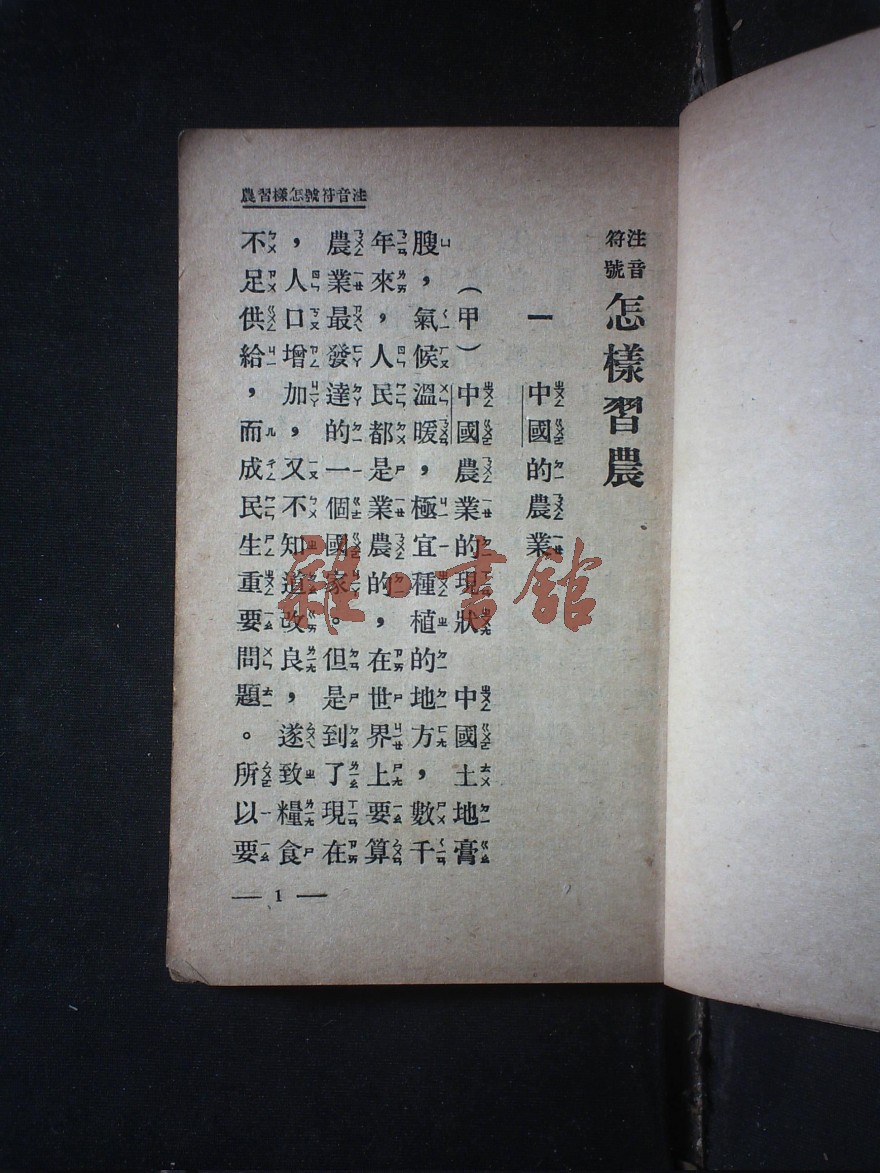 注音符號怎樣習農
注音
符號
怎樣習農
一 中國的農業
（甲）中國農業的現狀 中國土地膏
腴，氣候溫暖，極宜種植的地方，數千
年來，人民都是業農的，在世界上要算
農業最發達的一個國家。但是到了現在
，人口增加，又不知道改良，遂致糧食
不足供給，而成民生重要問題。所以要
— 1 —
雜·書館